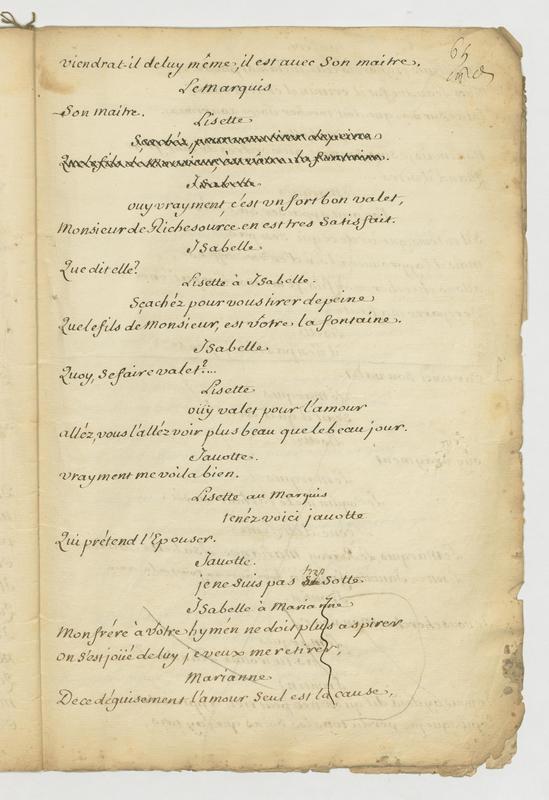 65
viendrat-il de luy même, il est avec Son maitre.
Le Marquis
Son maitre.
Lisette
Sçachéz, pour vous tirer de peine
Que le fils de Monsieur, est vôtre la fontaine.
Isabelle
ouy vrayment, c'est un fort bon valet,
Monsieur de Richesource en est tres Satisfait.
Isabelle.
Que dit elle?
Lisette à Isabelle.
Sçachéz pour vous tirer de peine
Que le fils de Monsieur, est vôtre la fontaine.
Isabelle.
Quoy, Se faire valet?...
Lisette
oüy valet pour l'amour
alléz, vous l'alléz voir plus beau que le beau jour.
Javotte.
vrayment me voila bien.
Lisette au Marquis
tenéz voici javotte
Qui prétend l'Epouser.
Javotte.
je ne Suis pas Sotte.
Isabelle à Marianne
Mon frére à vôtre hymén ne doit plus aspirer
on S'est joüé de luy je veux me retirer,
Marianne
De ce déguisement l'amour Seul est la cause,